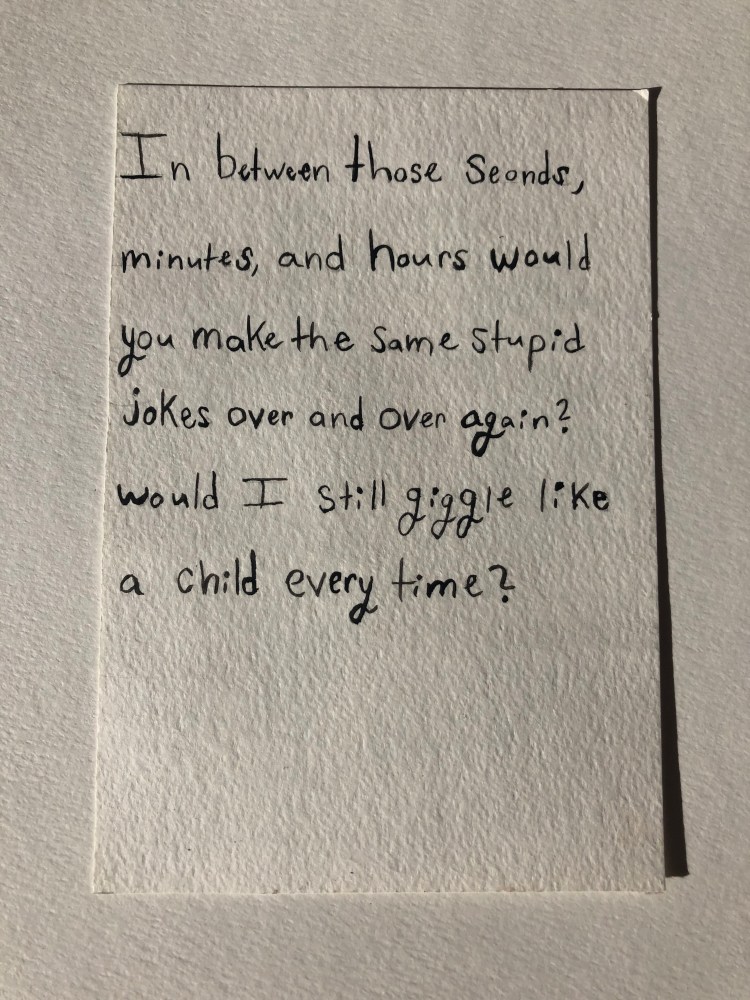 In between those Seonds,
minutes, and hours would
you make the same stupid
jokes over and over again?
would I still giggle like
a child every time?